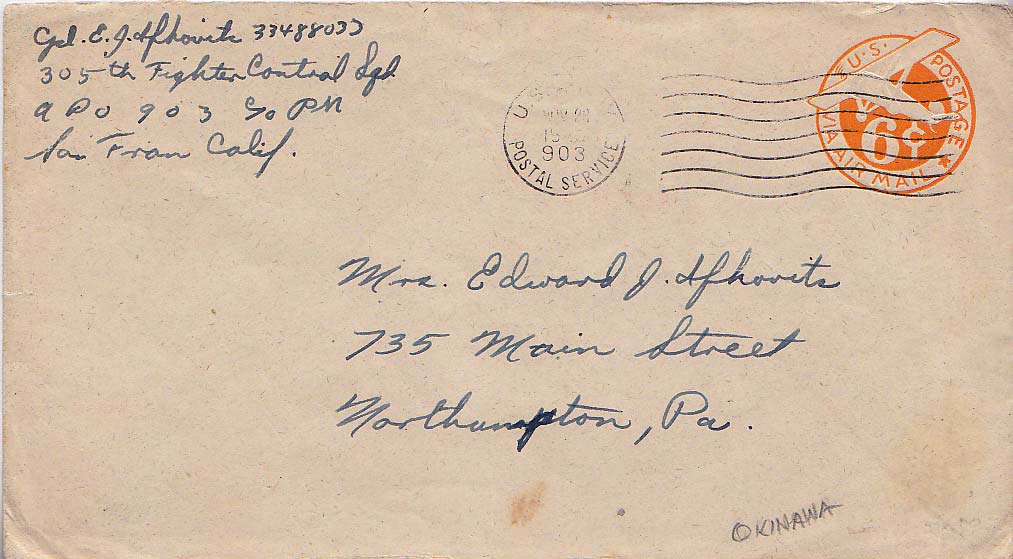 Cpl. E. J. Hfkovits 33488033
305th Fighter Control Sqd.
APO 903 c/o PM
San Fran Calif.
U.S.
903
POSTAL SERVICE
U.S. POSTAGE
6¢
VIA AIR MAIL
Mrs. Edward J. Hfkovits
735 Main Street
Northampton, Pa.
OKINAWA